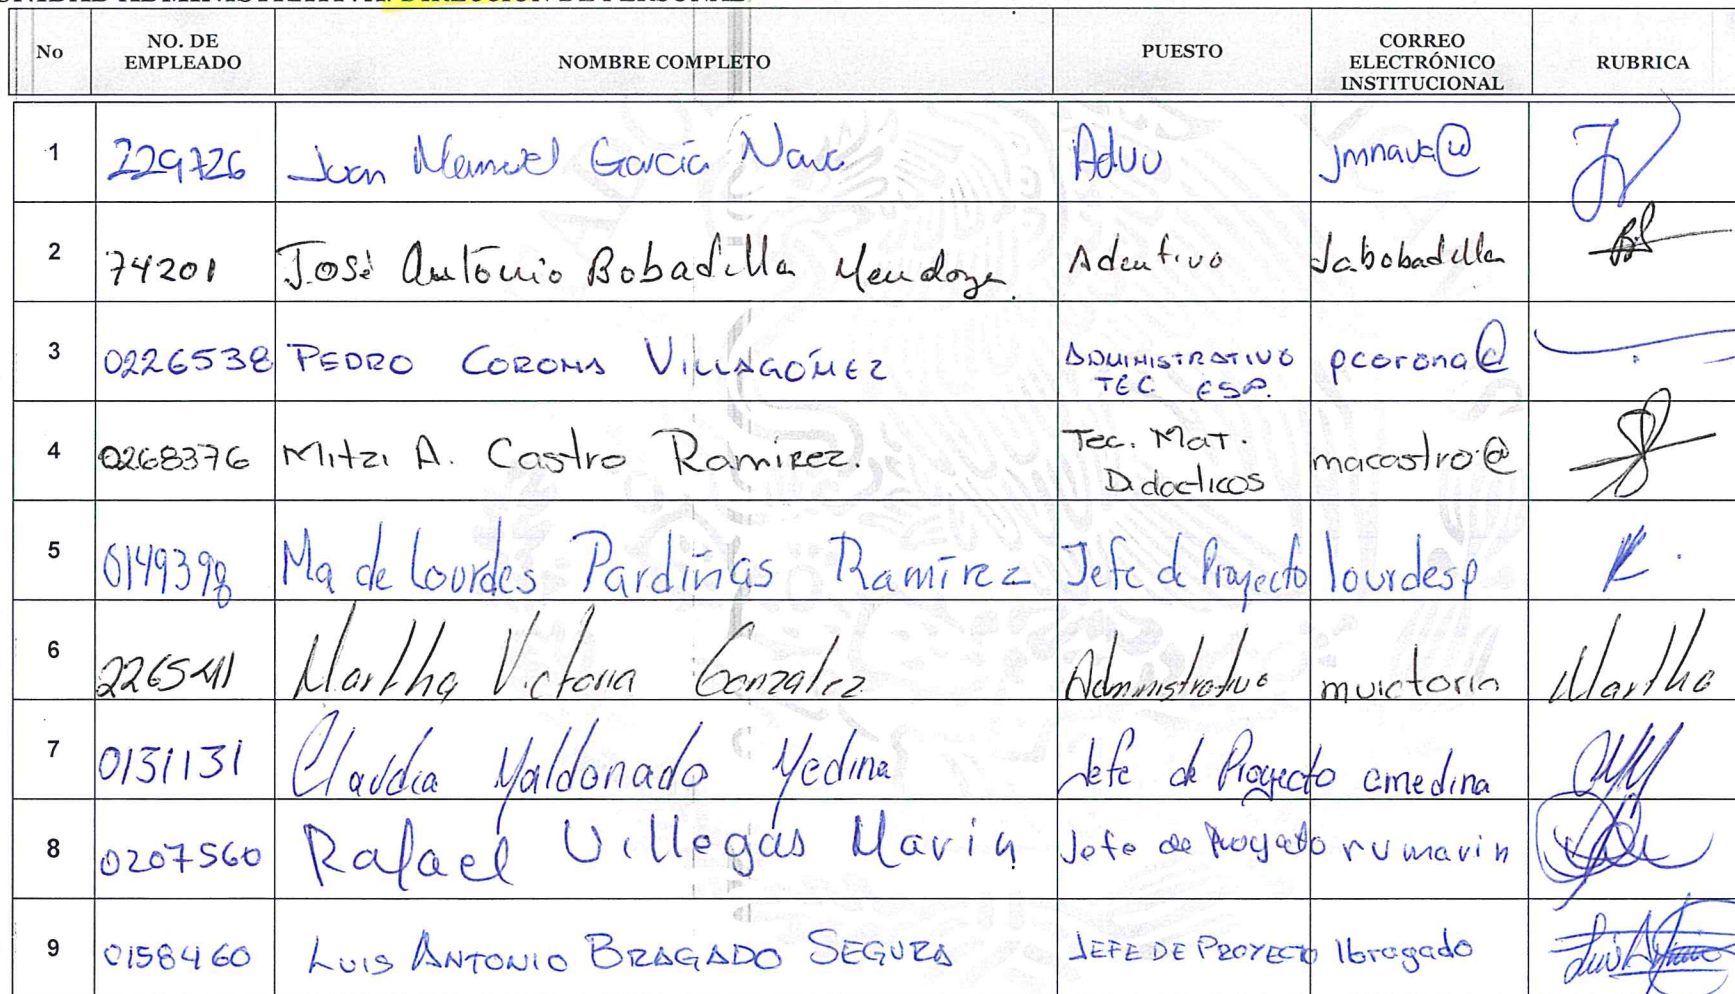 UNIDAD ADMINISTRATIVA: DIRECCIÓN DE PERSONAL
No NO. DE EMPLEADO NOMBRE COMPLETO PUESTO CORREO ELECTRÓNICO INSTITUCIONAL RUBRICA
1 229726 Juan Manuel García Nava Advo jmnava@
2 74201 José Antonio Bobadilla Mendoza jabobadilla
3 0226538 PEDRO CORONA VILLAGÓMEZ ADMINISTRATIVO TEC ESP. pcorona@
4 0268376 Mitzi A. Castro Ramirez. Tec. Mat. Didacticos macastro@
5 0149398 Ma de Lourdes Pardiñas Ramírez Jefe d Proyecto lourdesp
6 Martha Victoria Gonzalez Administrativo mvictoria Martha
7 0131131 Claudia Maldonado Medina Jefe de Proyecto cmedina
8 0207560 Rafael Villegas Marin Jefe de Proyecto rvmarin
9 0158460 LUIS ANTONIO BRAGADO SEGURA JEFE DE PROYECTO lbragado